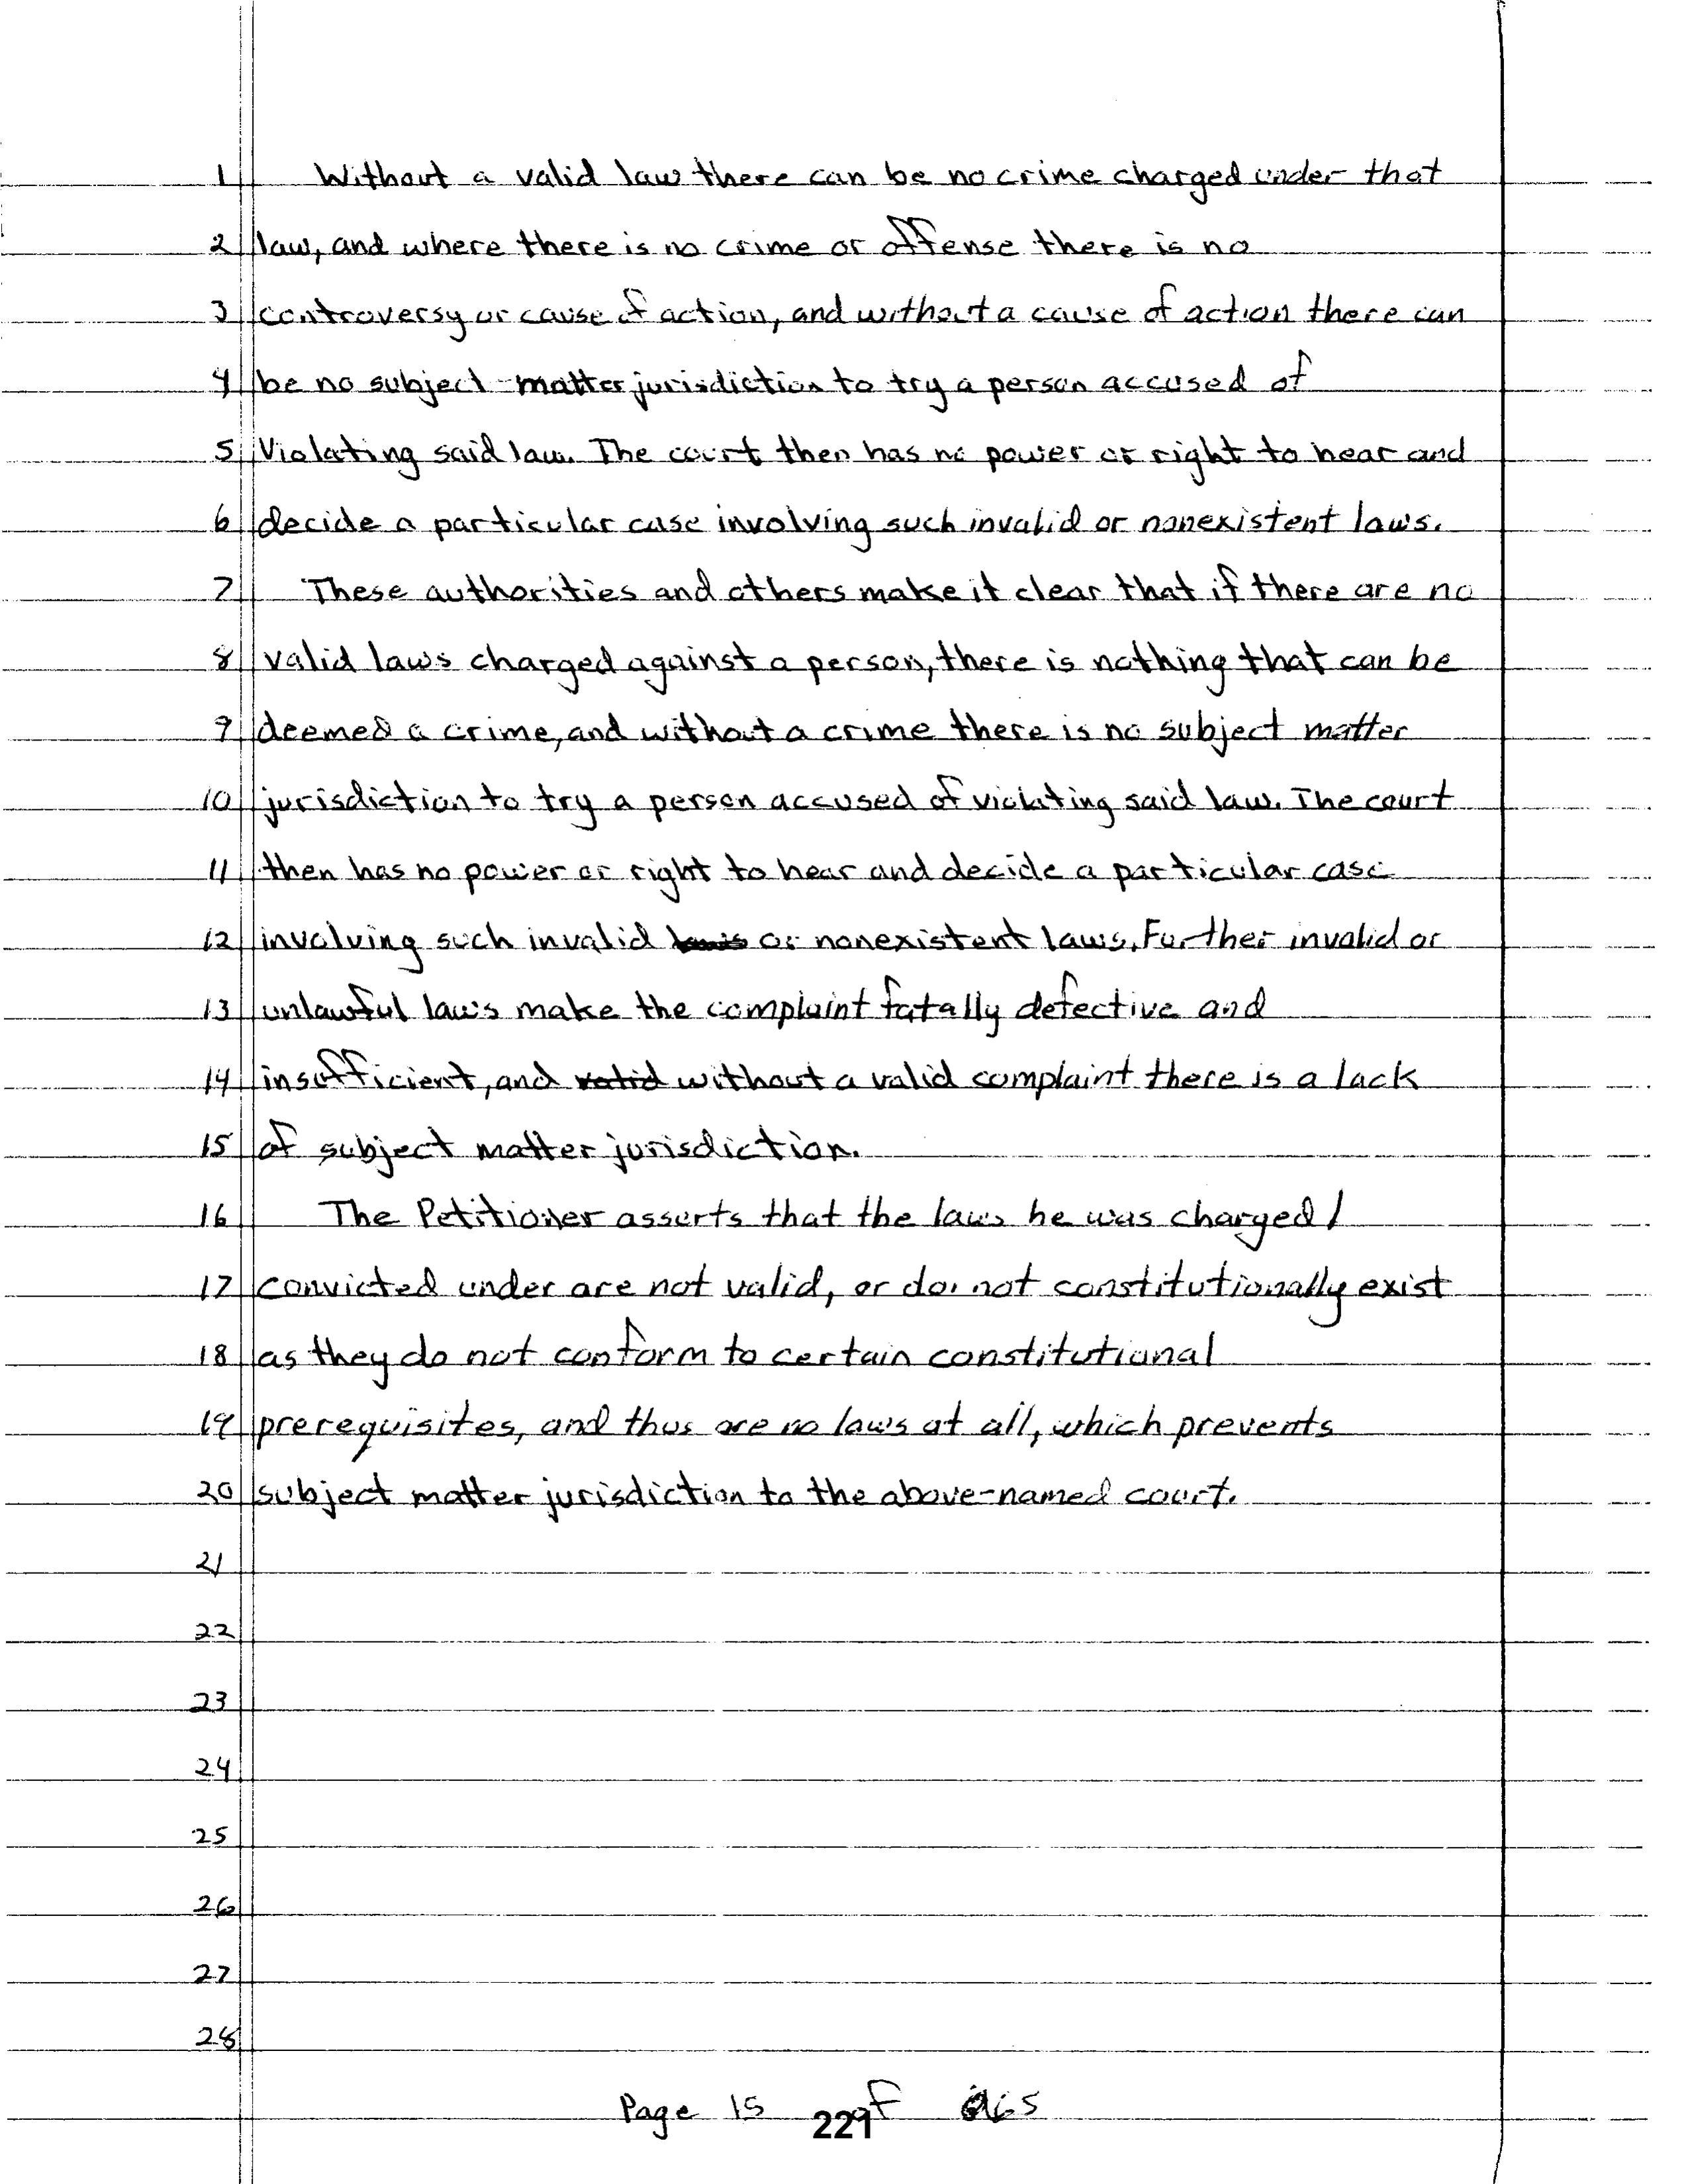 1 Without a valid law there can be no crime charged under that
2 law, and where there is no crime or offense there is no
3 controversy or cause of action, and without a cause of action there can
4 be no subject-matter jurisdiction to try a person accused of
5 Violating said law. The court then has no power or right to hear and
6 decide a particular case involving such invalid or nonexistent laws.
7 These authorities and others make it clear that if there are no
8 valid laws charged against a person, there is nothing that can be
9 deemed a crime, and without a crime there is no subject matter
10 jurisdiction to try a person accused of violating said law. The court
11 then has no power or right to hear and decide a particular case
12 involving such invalid laws or nonexistent laws. Further invalid or
13 unlawful laws make the complaint fatally defective and
14 insufficient, and valid without a valid complaint there is a lack
15 of subject matter jurisdiction.
16 The Petitioner asserts that the laws he was charged/
17 convicted under are not valid, or do not constitutionally exist
18 as they do not conform to certain constitutional
19 prerequisites, and thus are no laws at all, which prevents
20 subject matter jurisdiction to the above-named court.
21
22
23
24
25
26
27
28
Page 15 of 265
229